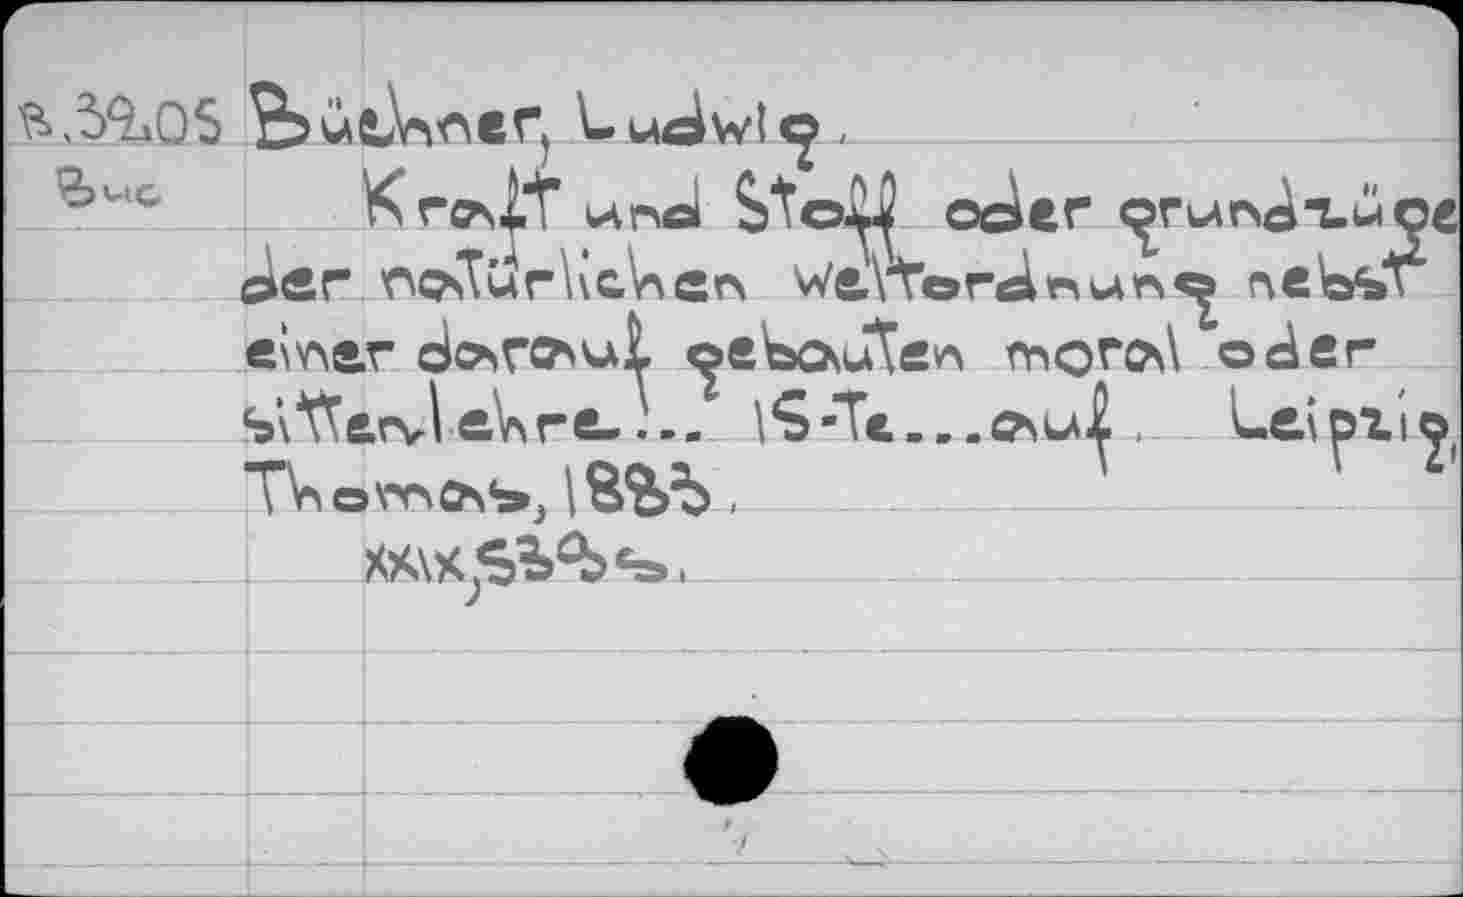 B.39205 Büchner, Ludwig.
Buc Kraft und Stoff oder grundzüge
der natürlichen Weltordnung nebst
einer darauf gebauten moral oder
sittenlehre... 15-Te...auf. Leipzig,
Thomas, 1883.
xxix, 523 s.